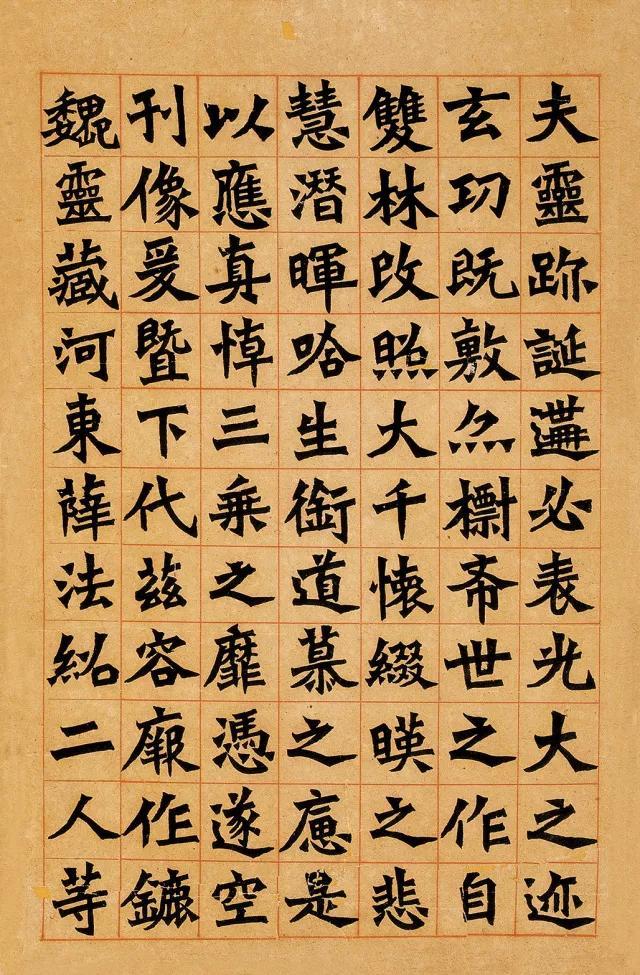 夫靈跡誕遘必表光大之迹
玄功既敷亦標希世之作自
雙林改照大千懷綴暎之悲
慧潛暉唅生銜道慕之是
以應真悼三乗之靡憑遂空
刊像爰暨下代茲容厥作鏕
魏靈藏河東薛法紹二人等